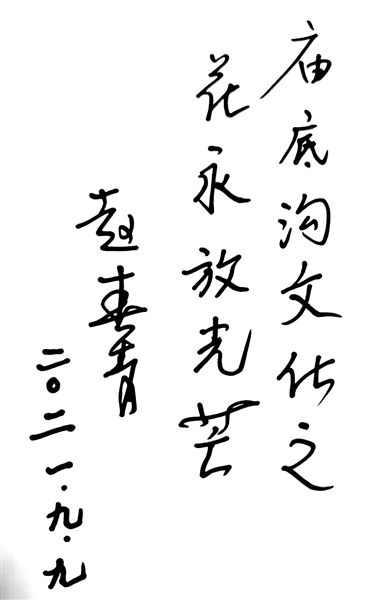 庙底沟文化之
花永放光芒
赵春青
二〇二一.九.九